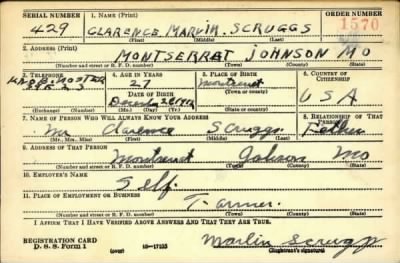 SERIAL NUMBER 1. NAME (Print) ORDER NUMBER
429 CLARENCE MARVIN SCRUGGS 1570
(First) (Middle) (Last)
2. ADDRESS (Print)
MONTSERRAT JOHNSON MO
(Number and street or R. F. D. number) (Town) (County) (State)
3. TELEPHONE 4. AGE IN YEARS 5. PLACE OF BIRTH 6. COUNTRY OF CITIZENSHIP
27 Montserrat
DATE OF BIRTH (Town or county)
USA
(Exchange) (Number) (Mo.) (Day) (Yr.) (State or country)
7. NAME OF PERSON WHO WILL ALWAYS KNOW YOUR ADDRESS 8. RELATIONSHIP OF THAT PERSON
Mr Clarence Scruggs Father
(Mr., Mrs., Miss) (First) (Middle) (Last)
9. ADDRESS OF THAT PERSON
Montserrat Johnson Mo
(Number and street or R. F. D. number) (Town) (County) (State)
10. EMPLOYER'S NAME
Self.
11. PLACE OF EMPLOYMENT OR BUSINESS
Farmer.
(Number and street or R. F. D. number) (Town) (County) (State)
I AFFIRM THAT I HAVE VERIFIED ABOVE ANSWERS AND THAT THEY ARE TRUE.
REGISTRATION CARD
D. S. S. Form 1 (over) 16—17105 Marvin Scruggs
(Registrant's signature)